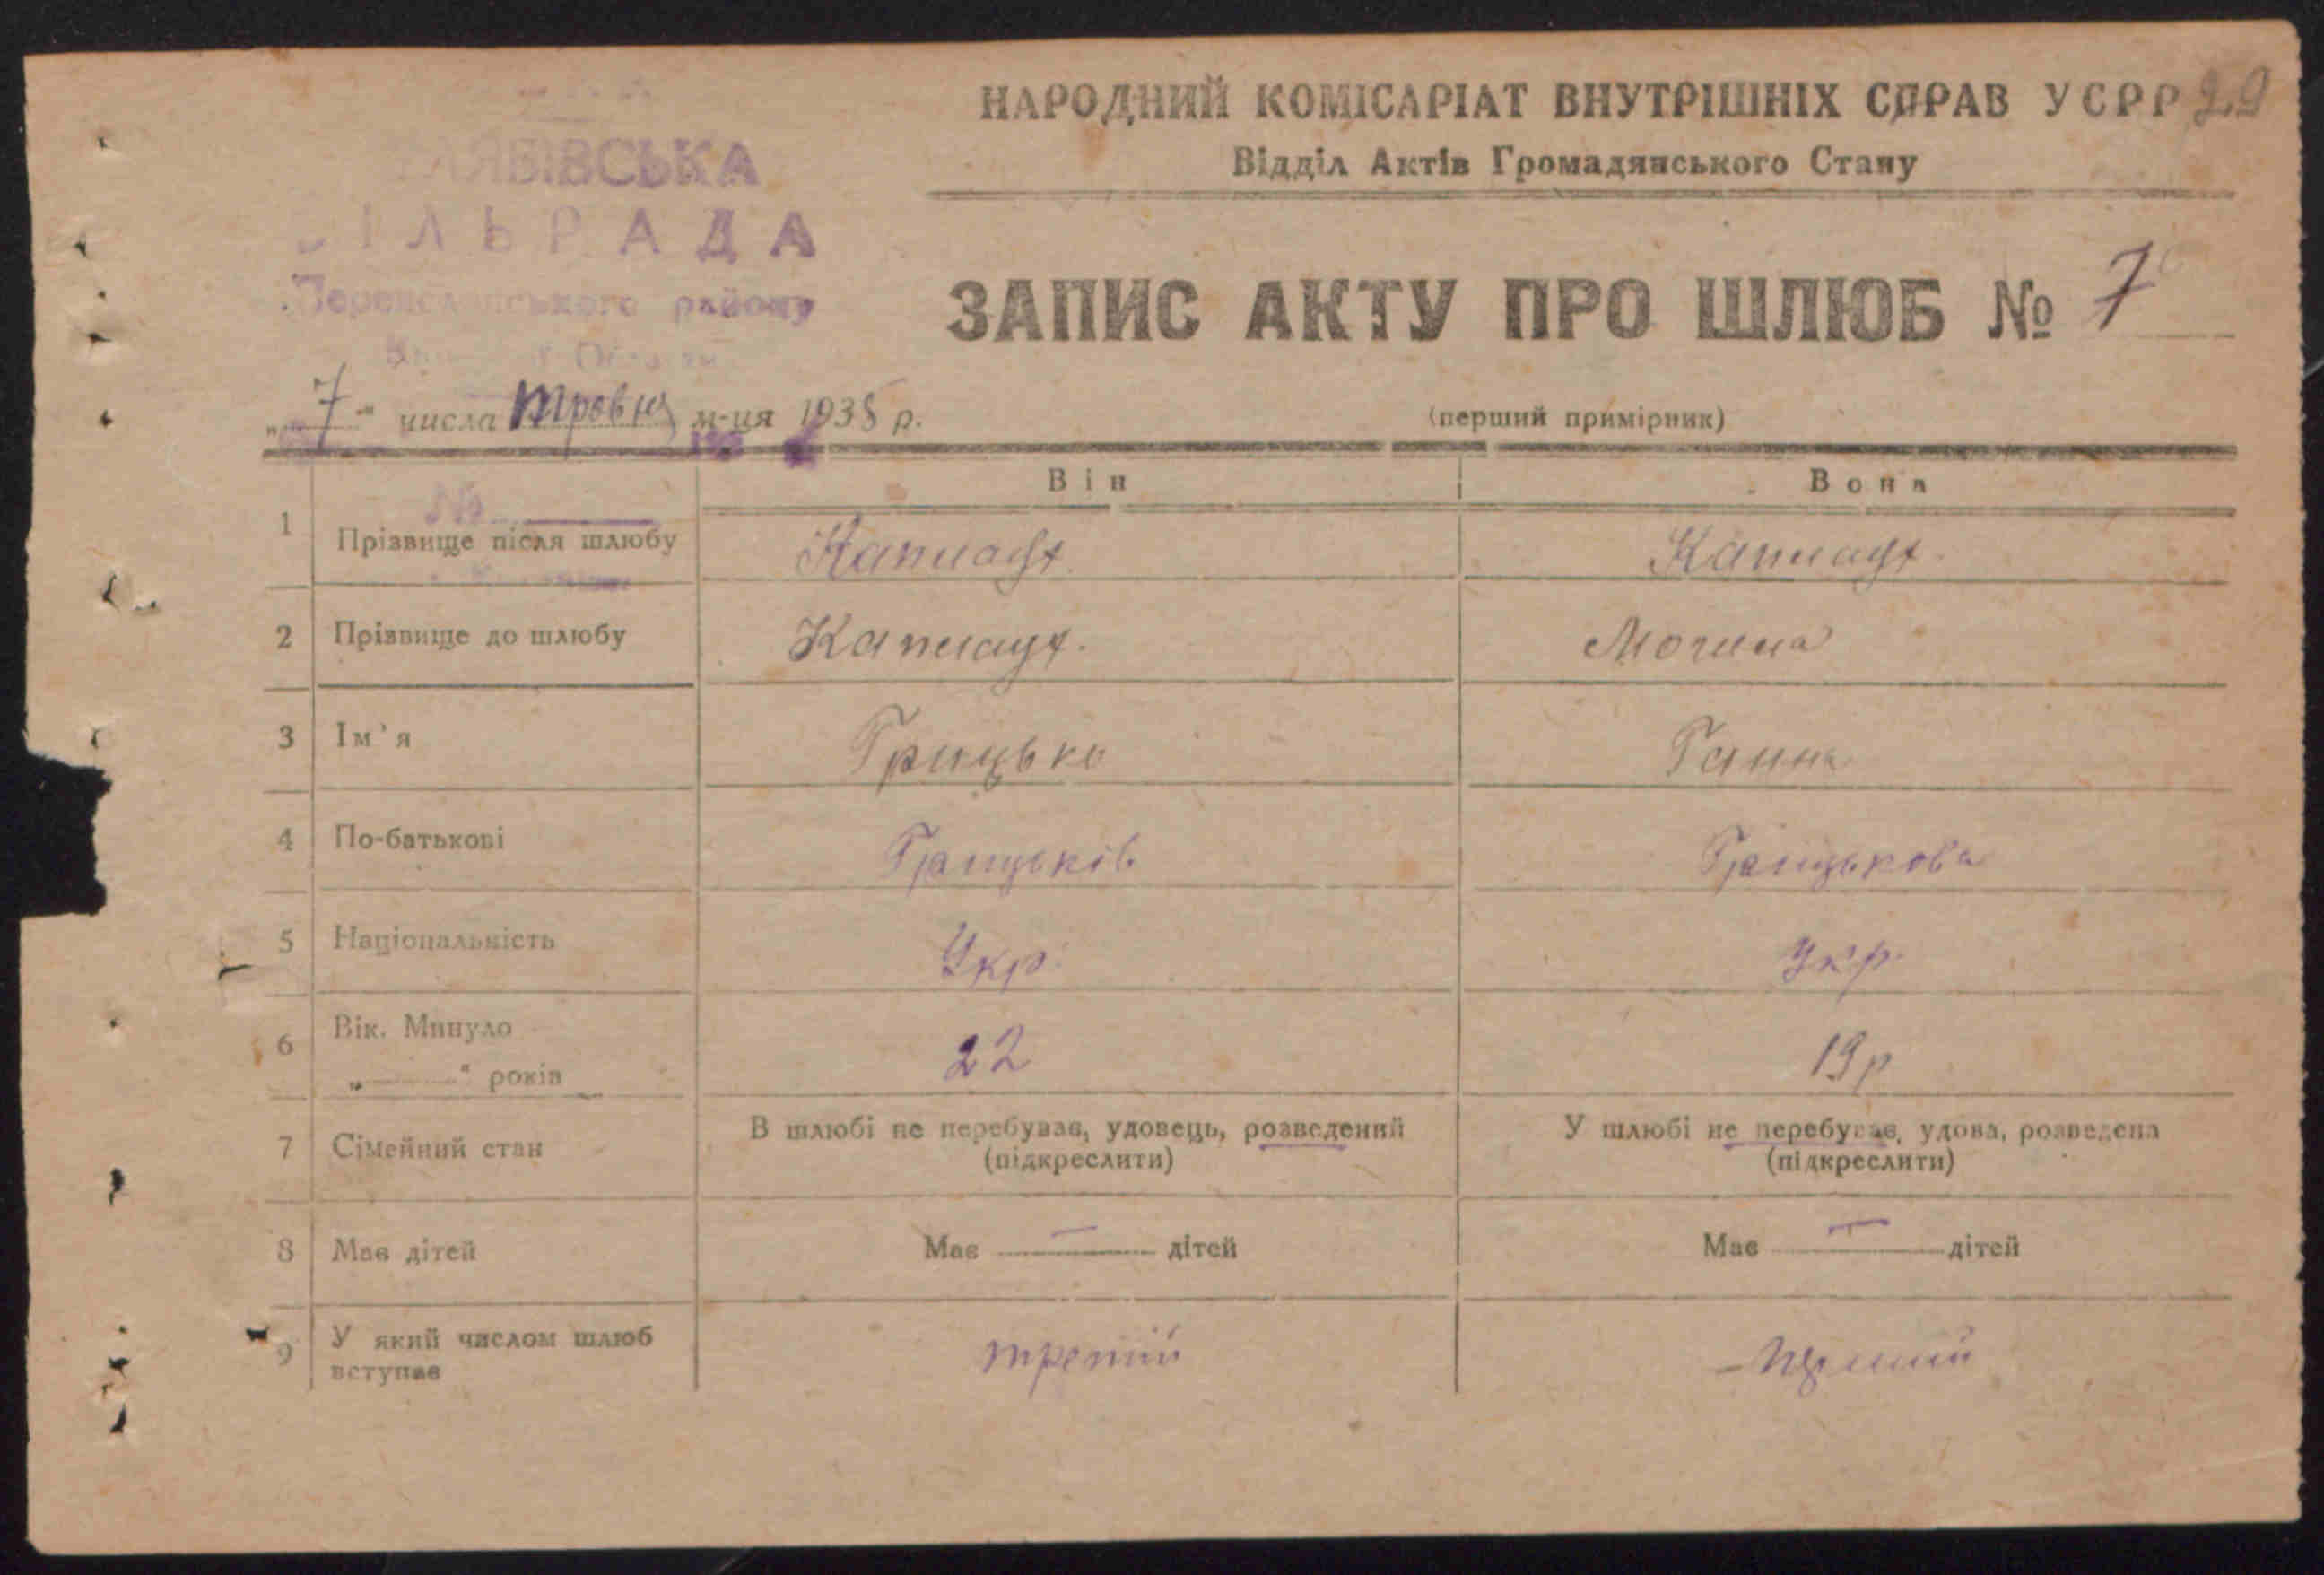 НАРОДНИЙ КОМІСАРІАТ ВНУТРІШНІХ СПРАВ УСРР 29
Відділ Актів Громадянського Стану
СІЛЬРАДА
району
ЗАПИС АКТУ ПРО ШЛЮБ № 7
„7“ числа травня м-ця 1938 р.
(перший примірник)
Він Вона
1 Прізвище після шлюбу
2 Прізвище до шлюбу Могила
3 Ім'я Грицько Ганна
4 По-батькові Грицьків Грицькова
5 Національність Укр. Укр.
6 Вік. Минуло „ “ років 22 19р
7 Сімейний стан
В шлюбі не перебуває, удовець, розведений (підкреслити)
У шлюбі не перебуває, удова, розведена (підкреслити)
8 Має дітей Має — дітей Має — дітей
9 У який числом шлюб вступає третій